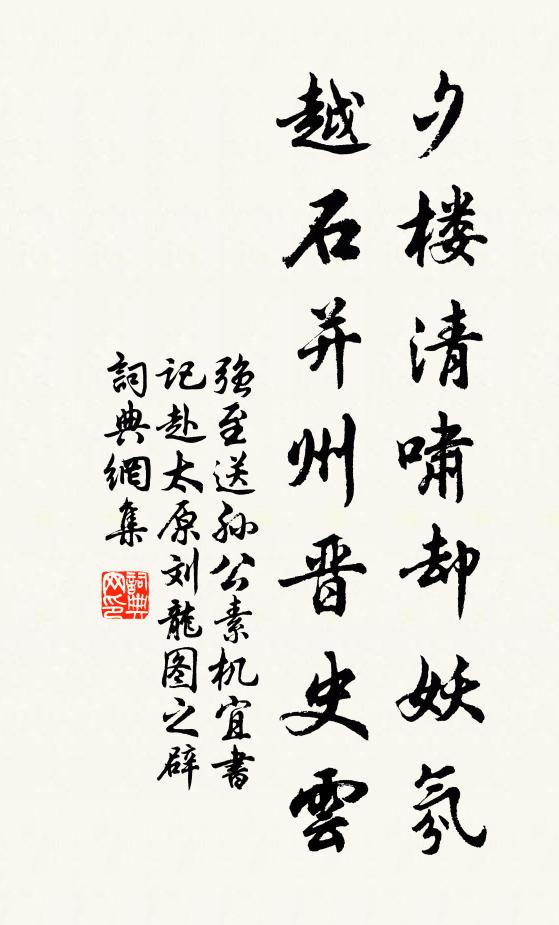 夕楼清啸却妖氛
越石并州晋史雲
强至送孙公素机宜書
记赴太原刘龍图之辟
詞典網集
詞典网印